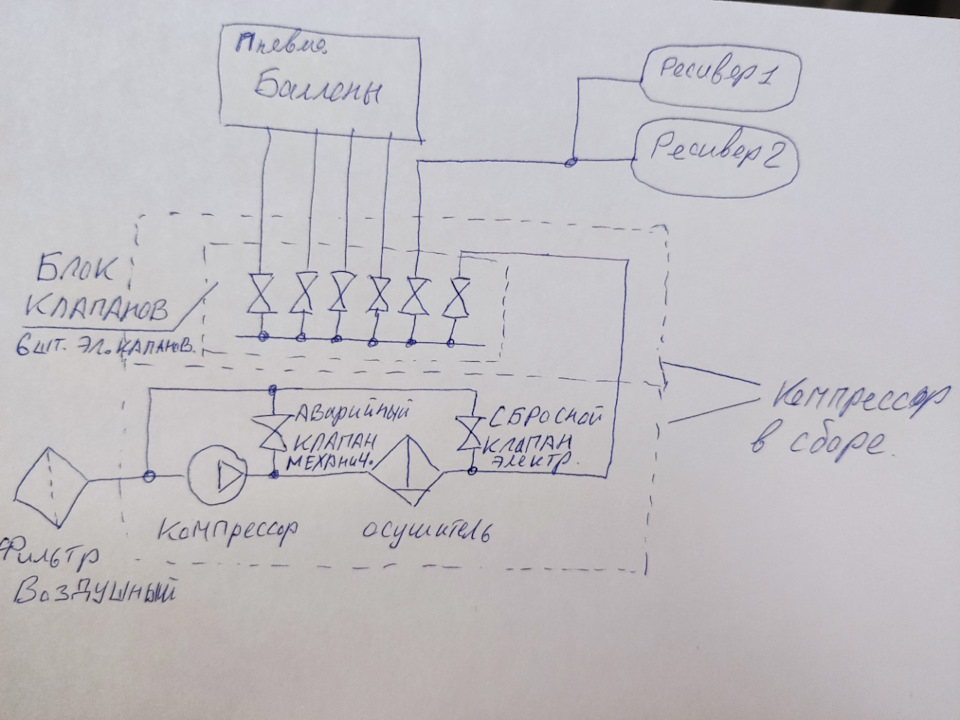 Пневмо.
Баллоны
Ресивер 1
Ресивер 2
БЛОК
КЛАПАНОВ
6 шт. Эл. КАПАНОВ.
АВАРИЙНЫЙ
КЛАПАН
МЕХАНИЧ.
СБРОСНОЙ
КЛАПАН
ЭЛЕКТР.
Компрессор
в сборе.
Компрессор
осушитель
Фильтр
Воздушный